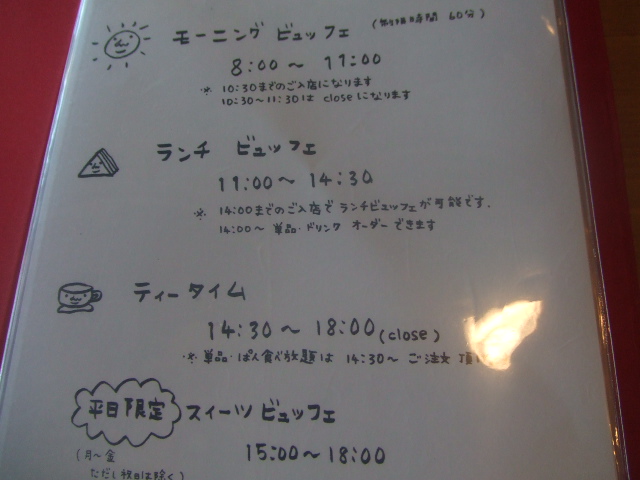 モーニング ビュッフェ (制限時間 60分)
8:00 〜 11:00
※ 10:30までのご入店になります
10:30〜11:30は closeになります
ランチ ビュッフェ
11:00 〜 14:30
※ 14:00までのご入店で ランチビュッフェが可能です.
14:00〜 単品・ドリンク オーダー できます
ティータイム
14:30 〜 18:00 (close)
※ 単品・ぱん食べ放題は 14:30〜 ご注文 頂
平日限定 スイーツ ビュッフェ
(月〜金
15:00 〜 18:00
ただし祝日は除く)